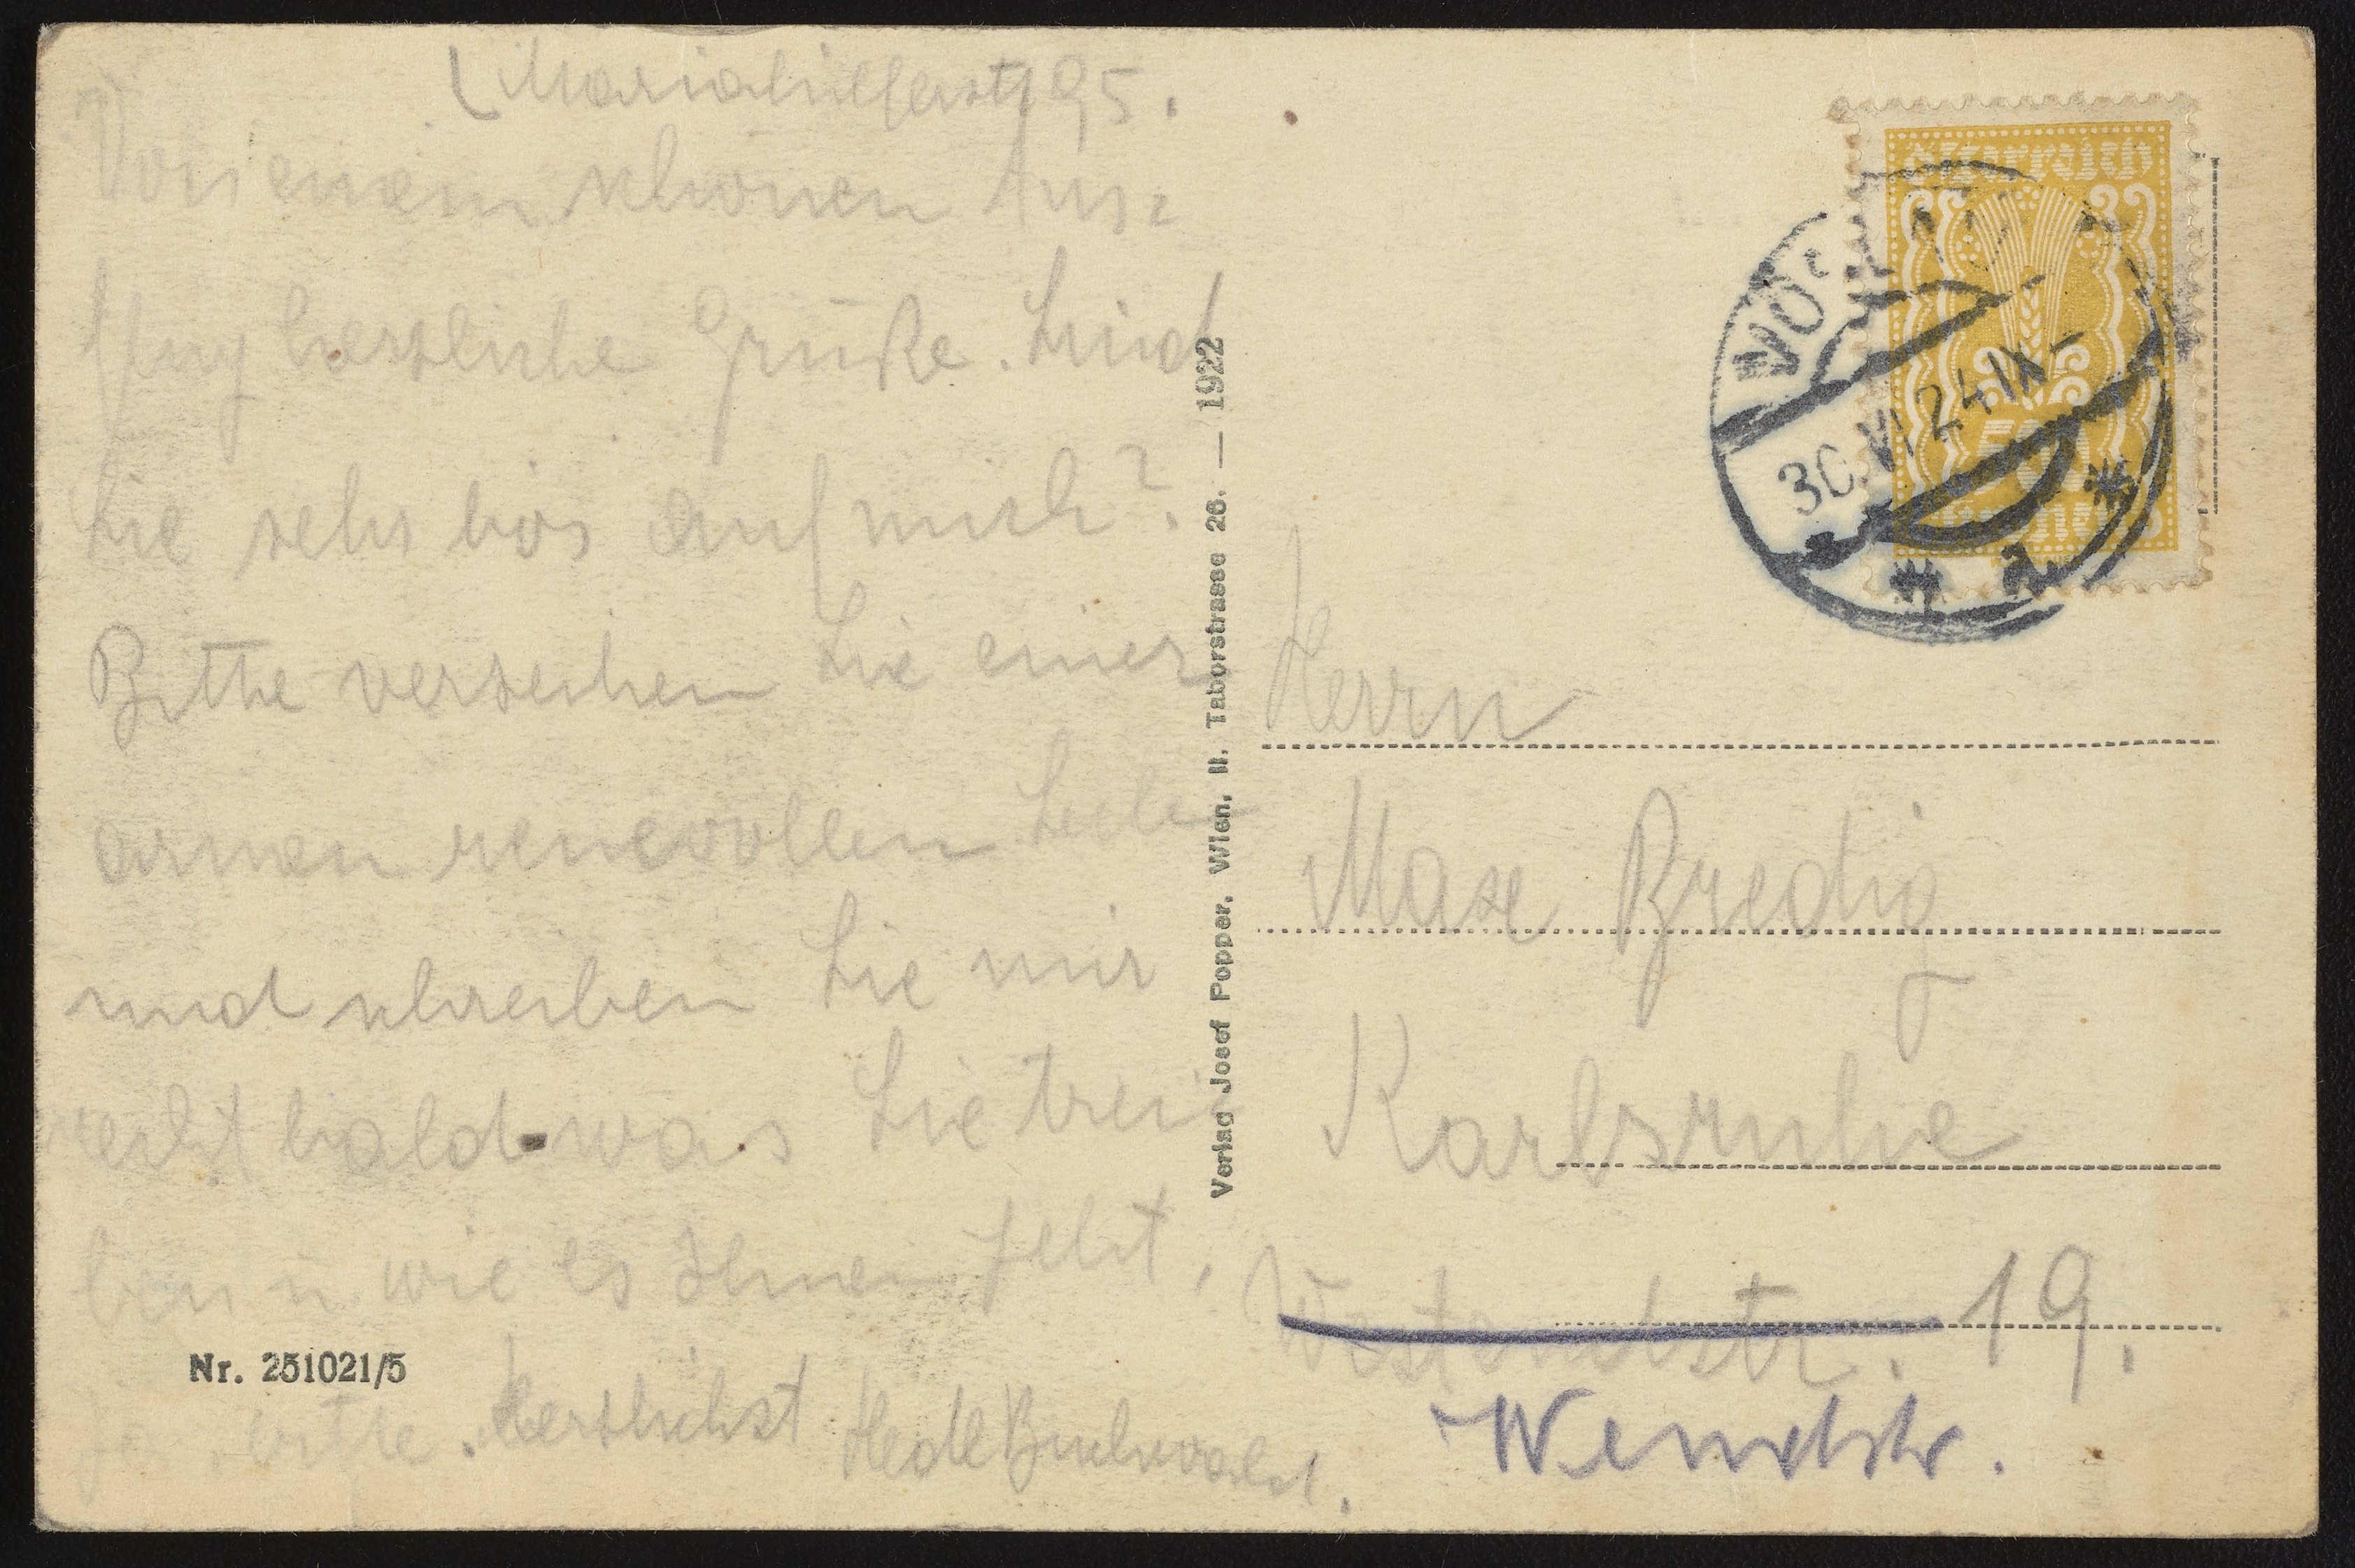 Mariahilferstr 95.
Von einem schönen Aus=
flug herzliche Grüße. Sind
Sie sehr bös auf mich?
Bitte verzeihen Sie einer
armen reuevollen Seele
und schreiben Sie mir
recht bald was Sie trei
ben u. wie es Ihnen geht,
ja, bitte. Herzlichst Hedl Buchwald.
Nr. 251021/5
Verlag Josef Popper, Wien, II. Taborstrasse 26. — 1922
ÖSTERREICH
30.VI 24 IX-
a
Herrn
Max Bredig
Karlsruhe
Westendstr. 19.
Wendstr.